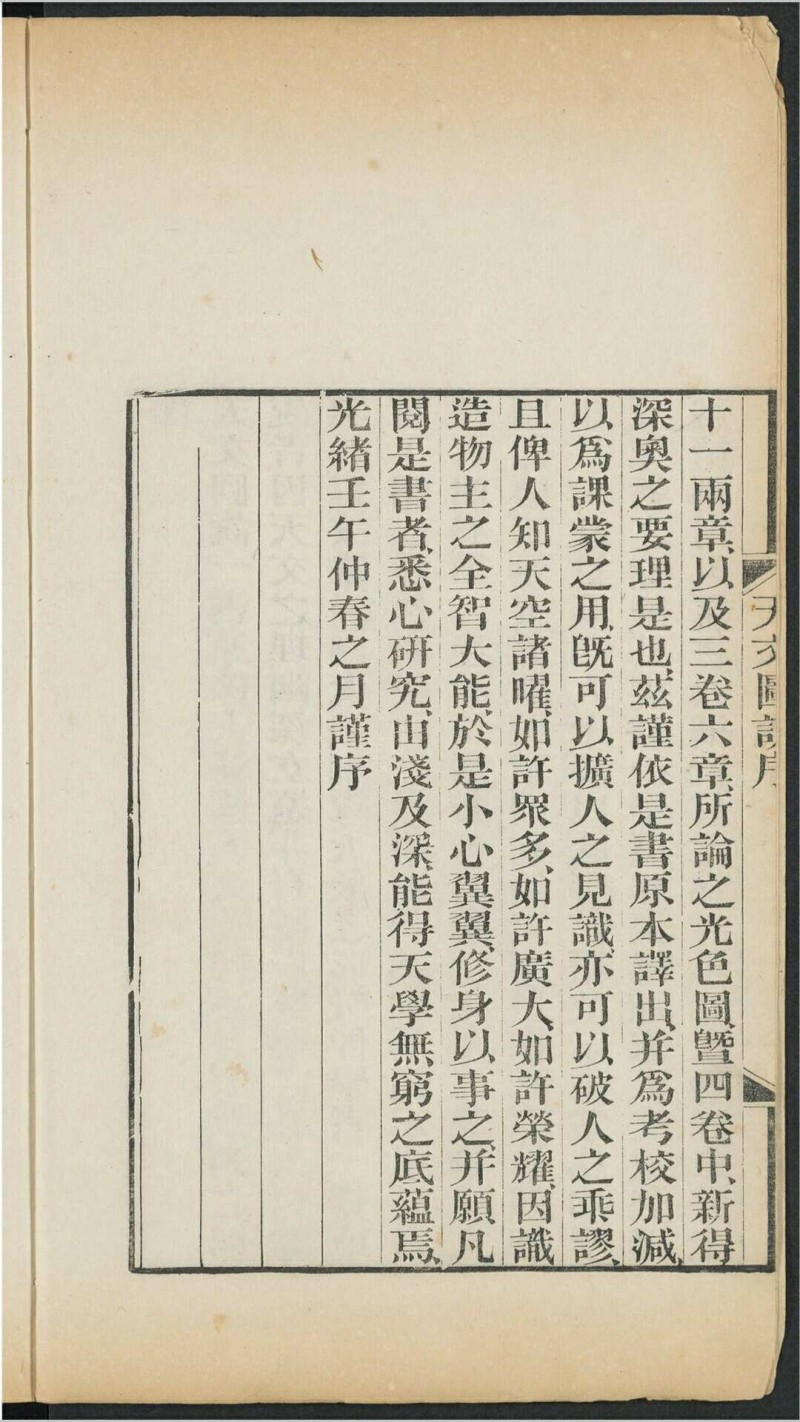 天文圖說序
十一兩章、以及三卷六章、所論之光色圖、曁四卷中、新得
深奧之要理是也、茲謹依是書原本譯出、并爲考校加減、
以爲課蒙之用、旣可以擴人之見識、亦可以破人之乖謬、
且俾人知天空諸曜、如許衆多、如許廣大、如許榮耀、因識
造物主之全智大能、於是小心翼翼、修身以事之、并願凡
閱是書者、悉心研究、由淺及深、能得天學無窮之底蘊焉、
光緒壬午仲春之月謹序